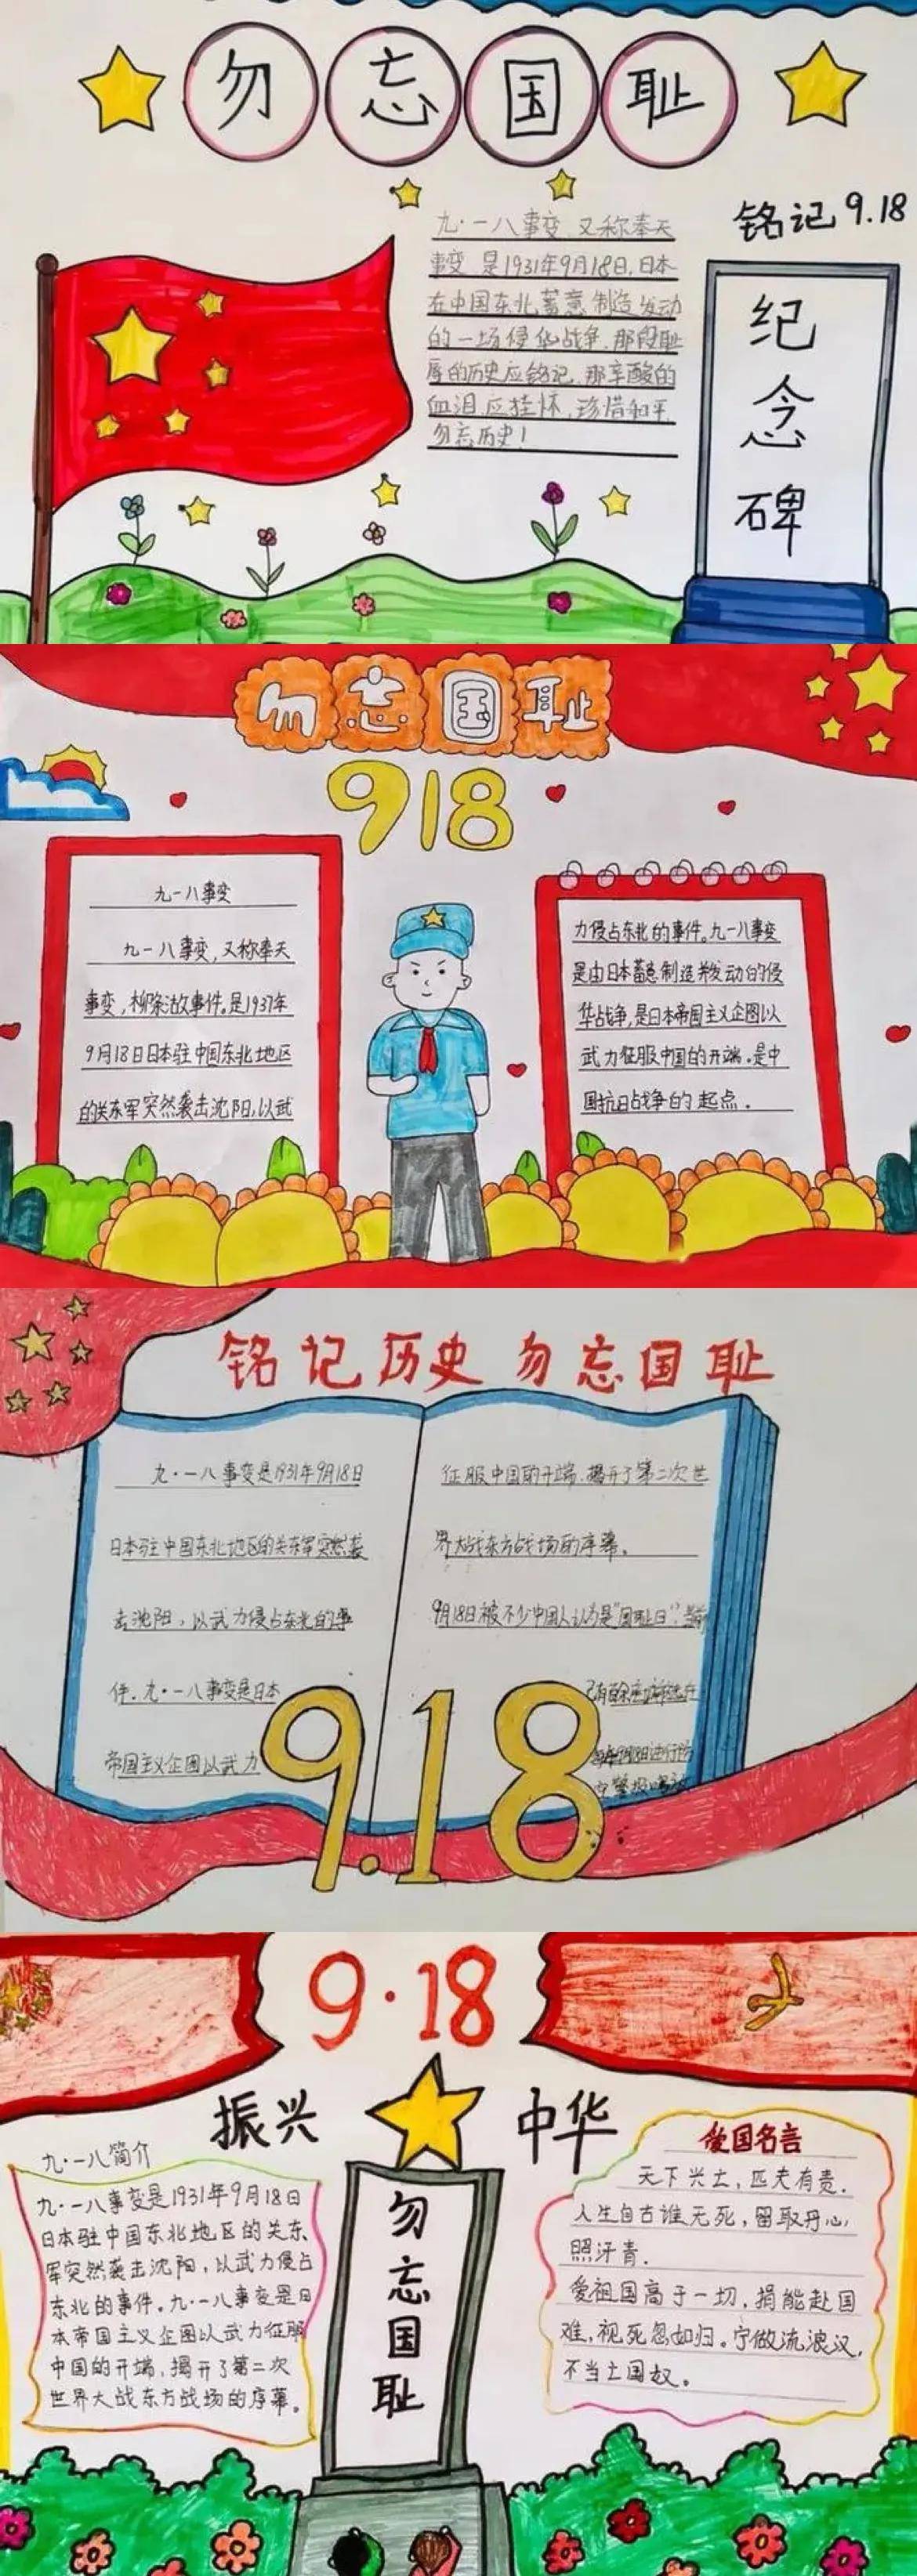 勿忘国耻
铭记9.18
九·一八事变,又称奉天
事变,是1931年9月18日,日本
在中国东北蓄意制造发动
的一场侵华战争,那段耻
辱的历史应铭记,那辛酸的
血泪应挂怀,珍惜和平,
勿忘历史!
纪
念
碑
勿忘国耻
918
九一八事变
九一八事变,又称奉天
事变,柳条湖事件。是1931年
9月18日日本驻中国东北地区
的关东军突然袭击沈阳,以武
力侵占东北的事件。九一八事变
是由日本蓄意制造并发动的侵
华战争,是日本帝国主义企图以
武力征服中国的开端,是中
国抗日战争的起点.
铭记历史 勿忘国耻
九·一八事变是1931年9月18日
日本驻中国东北地区的关东军突然袭
击沈阳,以武力侵占东北的事
件.九·一八事变是日本
帝国主义企图以武力
征服中国的开端.揭开了第二次世
界大战东方战场的序幕。
9月18日被不少中国人认为是"国耻日"
9.18
9·18
振兴 中华
九·一八简介
九·一八事变是1931年9月18日
日本驻中国东北地区的关东
军突然袭击沈阳,以武力侵占
东北的事件。九·一八事变是日
本帝国主义企图以武力征服
中国的开端,揭开了第二次
世界大战东方战场的序幕。
勿
忘
国
耻
爱国名言
天下兴亡,匹夫有责.
人生自古谁无死,留取丹心
照汗青.
爱祖国高于一切,捐能赴国
难,视死忽如归。宁做流浪汉,
不当亡国奴。